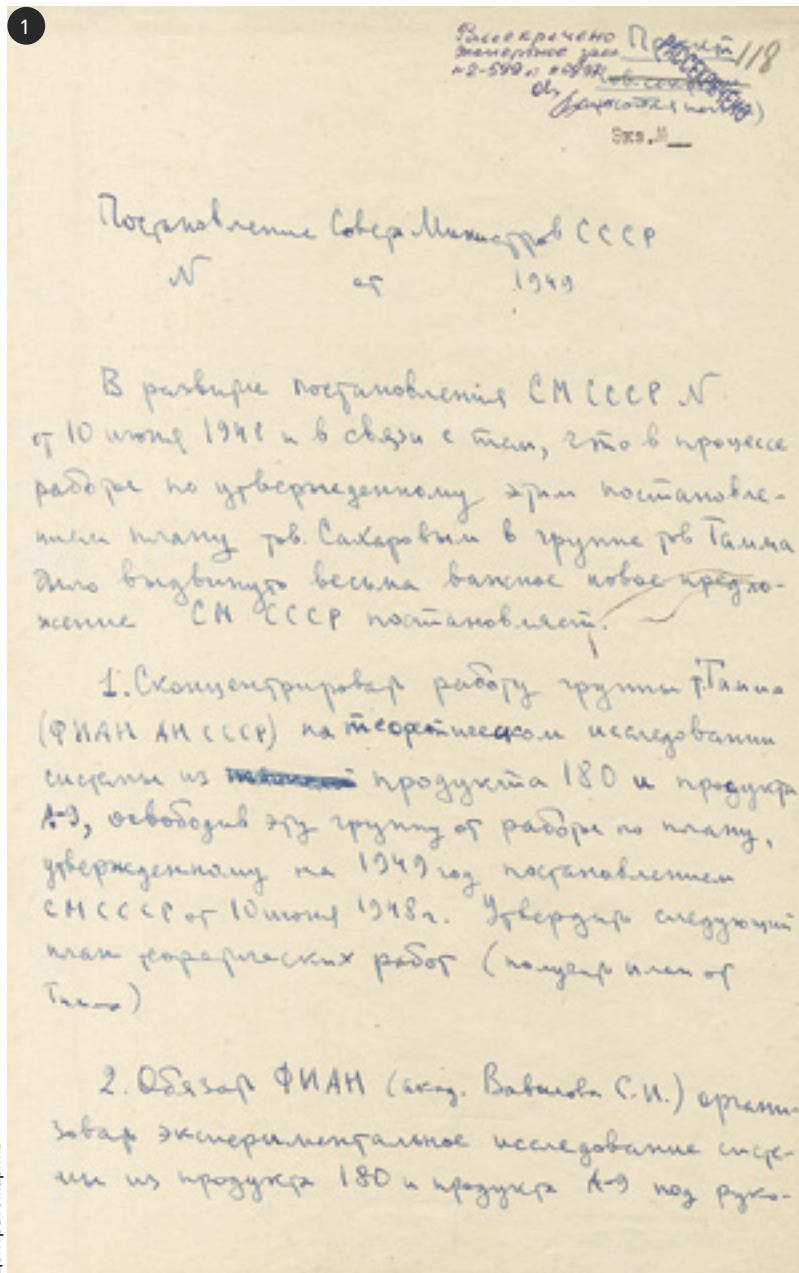 1
Рассекречено Проект 118
РАССЕКРЕЧЕНО
Экз.№
Постановление Совета Министров СССР
N от 1949
В развитие постановления СМ СССР N
от 10 июня 1948 и в связи с тем, что в процессе
работы по утвержденному этим постановле-
нием плану тов. Сахаровым в группе тов Тамма
было выдвинуто весьма важное новое предло-
жение СМ СССР постановляет.
1. Сконцентрировать работу группы т. Тамма
(ФИАН АН СССР) на теоретическом исследовании
системы из продукта 180 и продукта
А-9, освободив эту группу от работы по плану,
утвержденному на 1949 год постановлением
СМ СССР от 10 июня 1948 г. Утвердить следующий
план теоретических работ (получить план от
Тамма)
2. Обязать ФИАН (акад. Вавилова С.И.) органи-
зовать экспериментальное исследование систе-
мы из продукта 180 и продукта А-9 под руко-